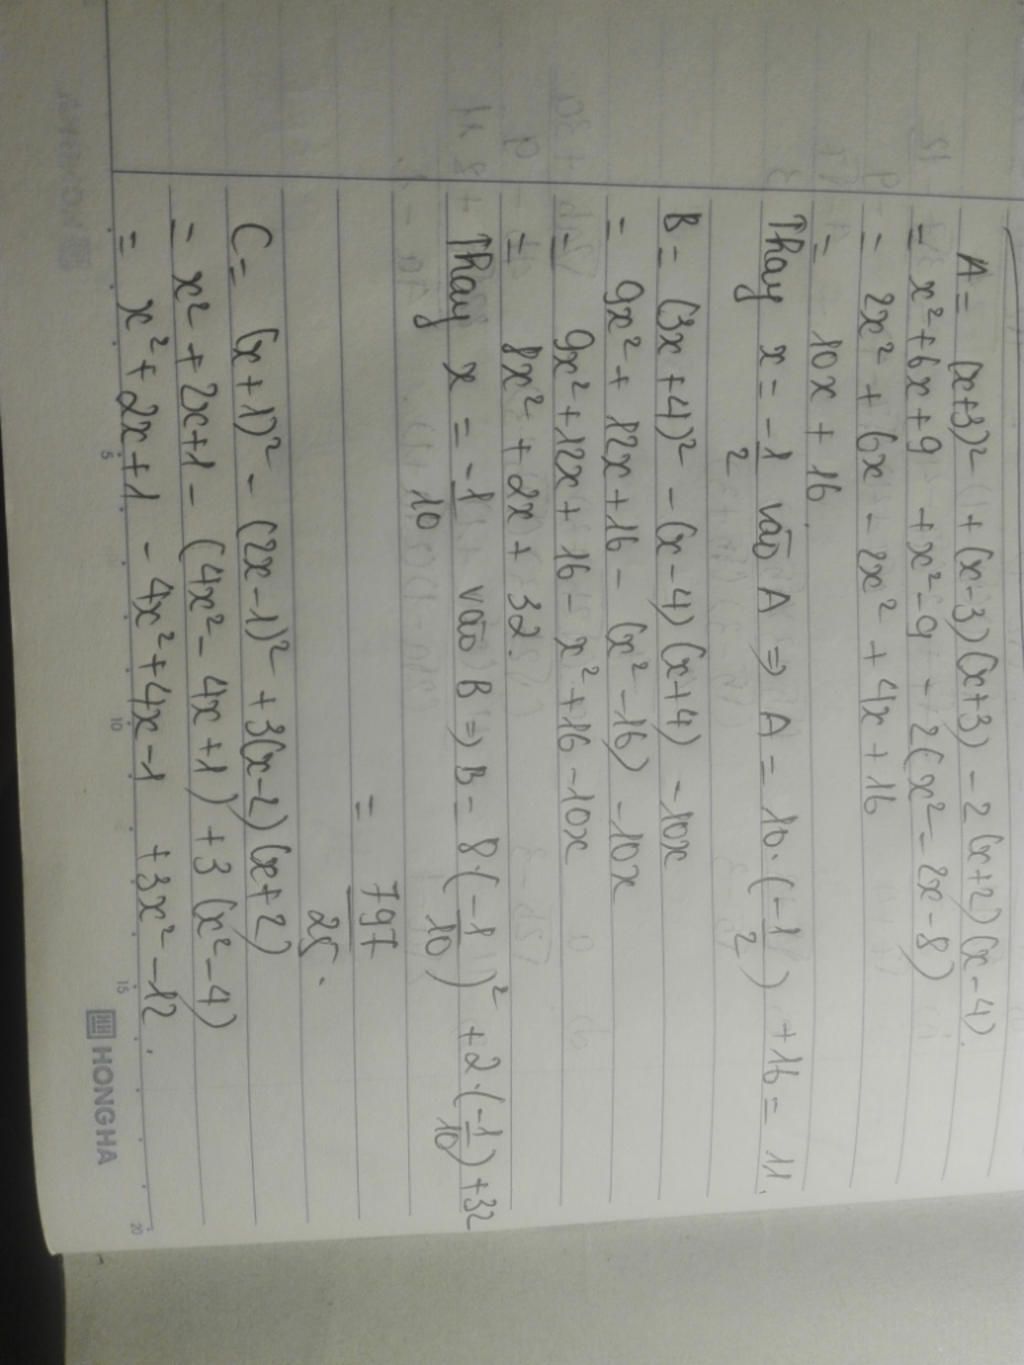 A = (x+3)² + (x-3)(x+3) - 2(x+2)(x-4).
= x² + 6x + 9 + x² - 9 - 2(x² - 2x - 8)
= 2x² + 6x - 2x² + 4x + 16
= 10x + 16.
Thay x = -1/2 vào A => A = 10.(-1/2) + 16 = 11.
B = (3x+4)² - (x-4)(x+4) - 10x
= 9x² + 12x + 16 - (x² - 16) - 10x
= 9x² + 12x + 16 - x² + 16 - 10x
= 8x² + 2x + 32.
Thay x = -1/10 vào B => B = 8.(-1/10)² + 2.(-1/10) + 32
= 797/25.
C = (x+1)² - (2x-1)² + 3(x-2)(x+2)
= x² + 2x + 1 - (4x² - 4x + 1) + 3(x² - 4)
= x² + 2x + 1 - 4x² + 4x - 1 + 3x² - 12.
5 10 15 20
HONG HA